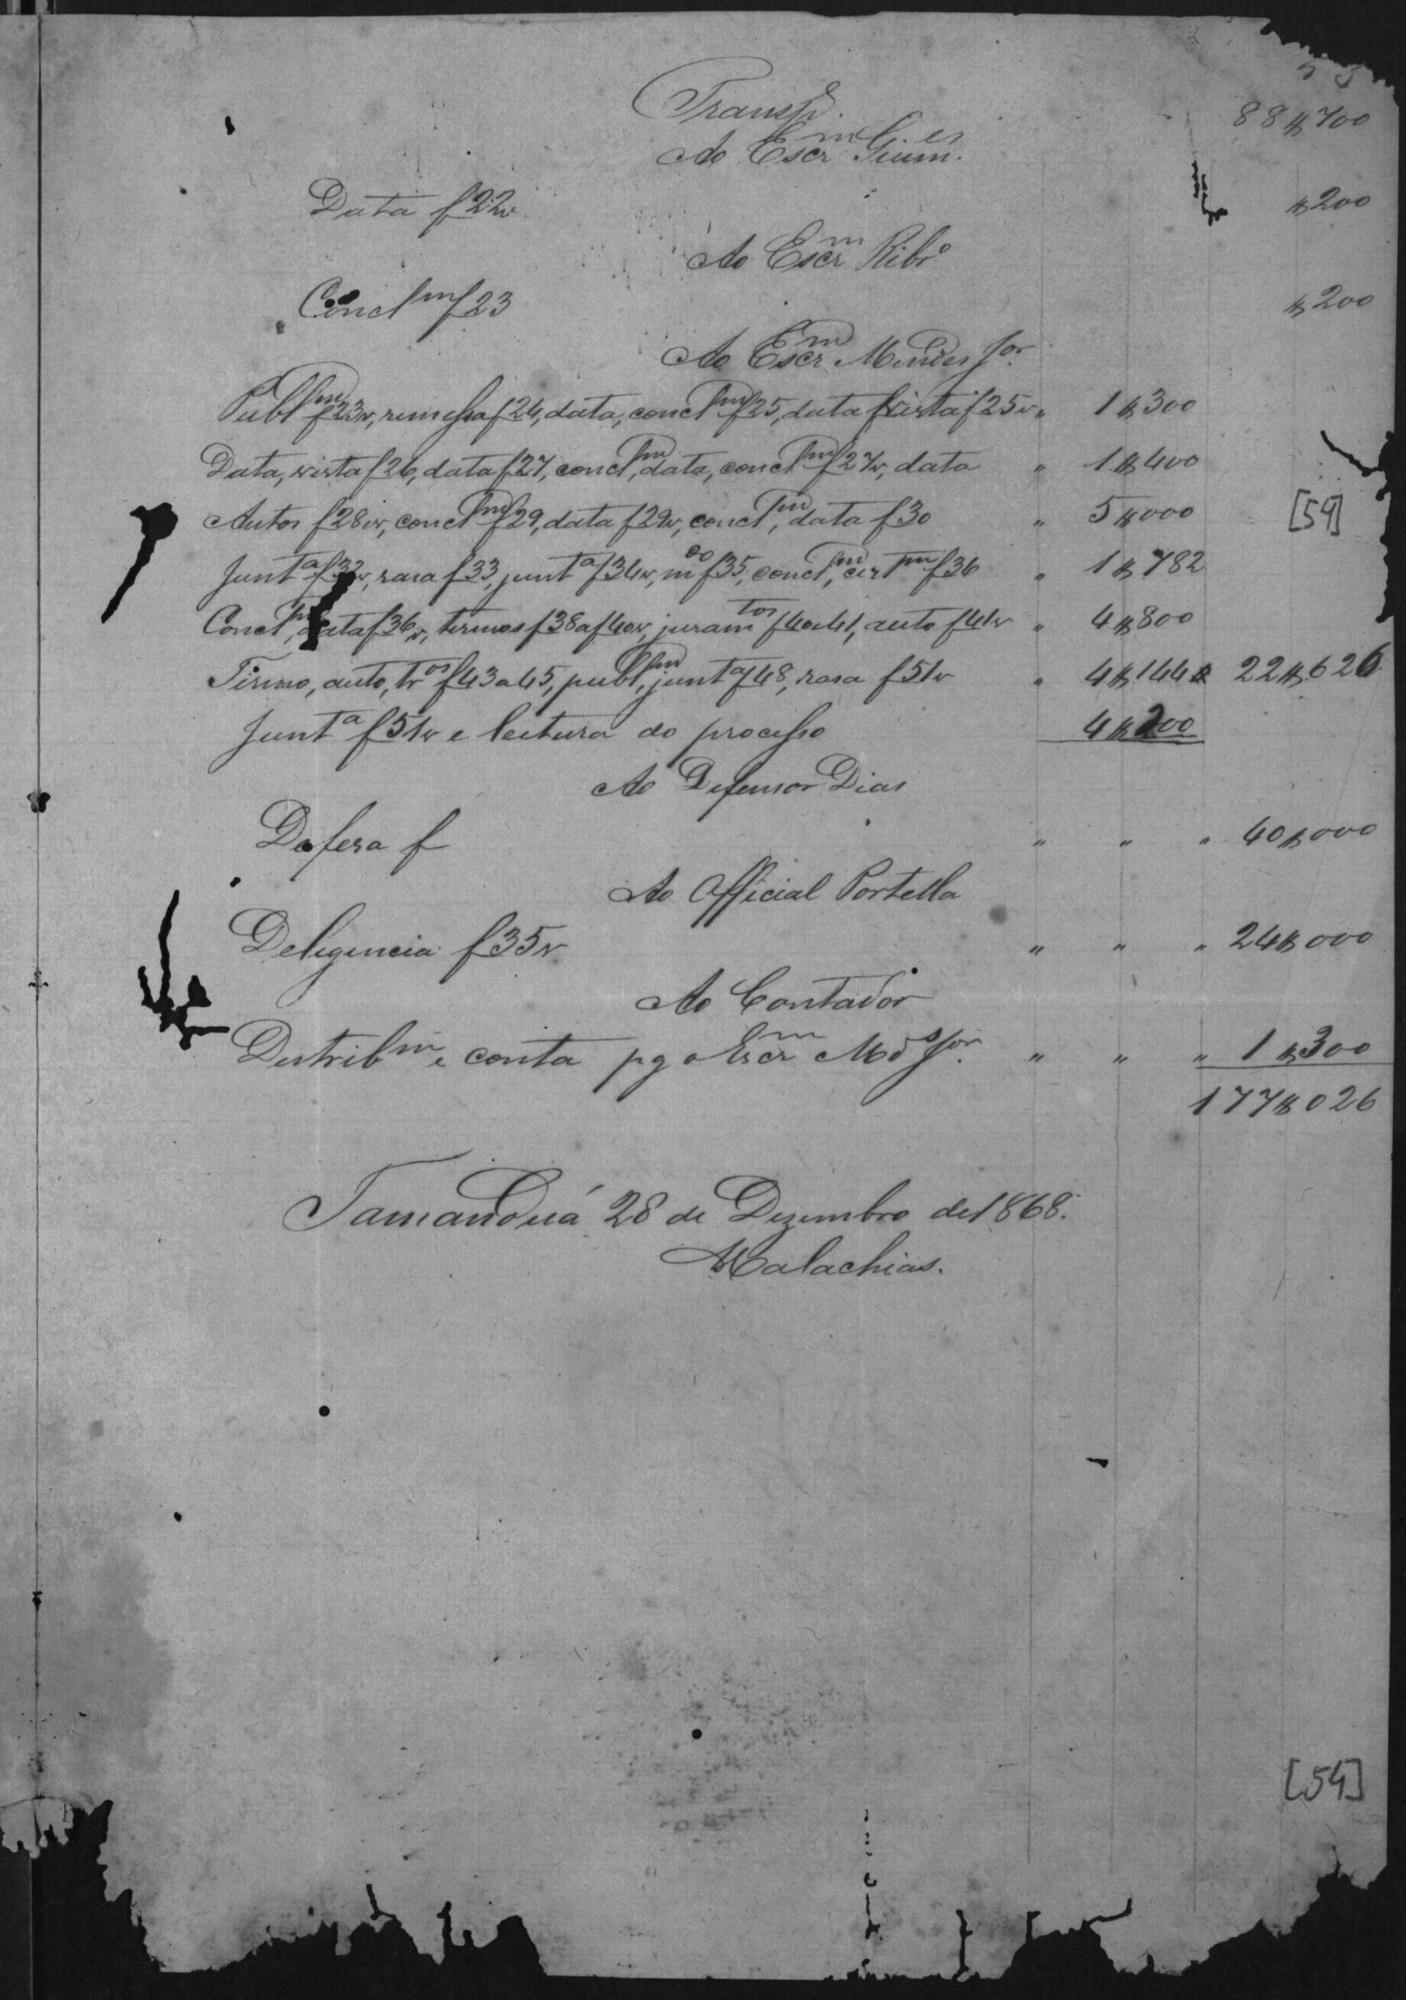 53
Transp.e 88$700
Ao Escrm Guimes.
Data f22v $200
Ao Escrm Ribro
Conclm f23 $200
Ao Escrm Mendes Jor.
Publm f23v, remessa f24, data, conclm f25, data f vista f25v " 1$300
Data, vista f26, data f27, conclm, data, conclm f27v, data " 1$400
Autos f28v, conclm f29, data f29v, conclm, data f30 " 5$000
[54]
Junta f32v, rasa f33, junta f34v, mdo f35, conclm, certm f36 " 1$782
Conclm, data f36v, termos f38 a f40v, juramtos f40 a 41, auto f41v " 4$800
Termo, auto, tros f43 a 45, publm, junta f48, rasa f51v " 4$144 22$626
Junta f51v e leitura do processo 4$200
Ao Defensor Dias
Defesa f " " " 40$000
Ao Official Portella
Deligencia f35v " " " 24$000
Ao Contador
Distribm e conta pg o Escrm Mds Jor. " " " 1$300
177$026
Tamanduá 28 de Dezembro de 1868.
Malachias.
[54]